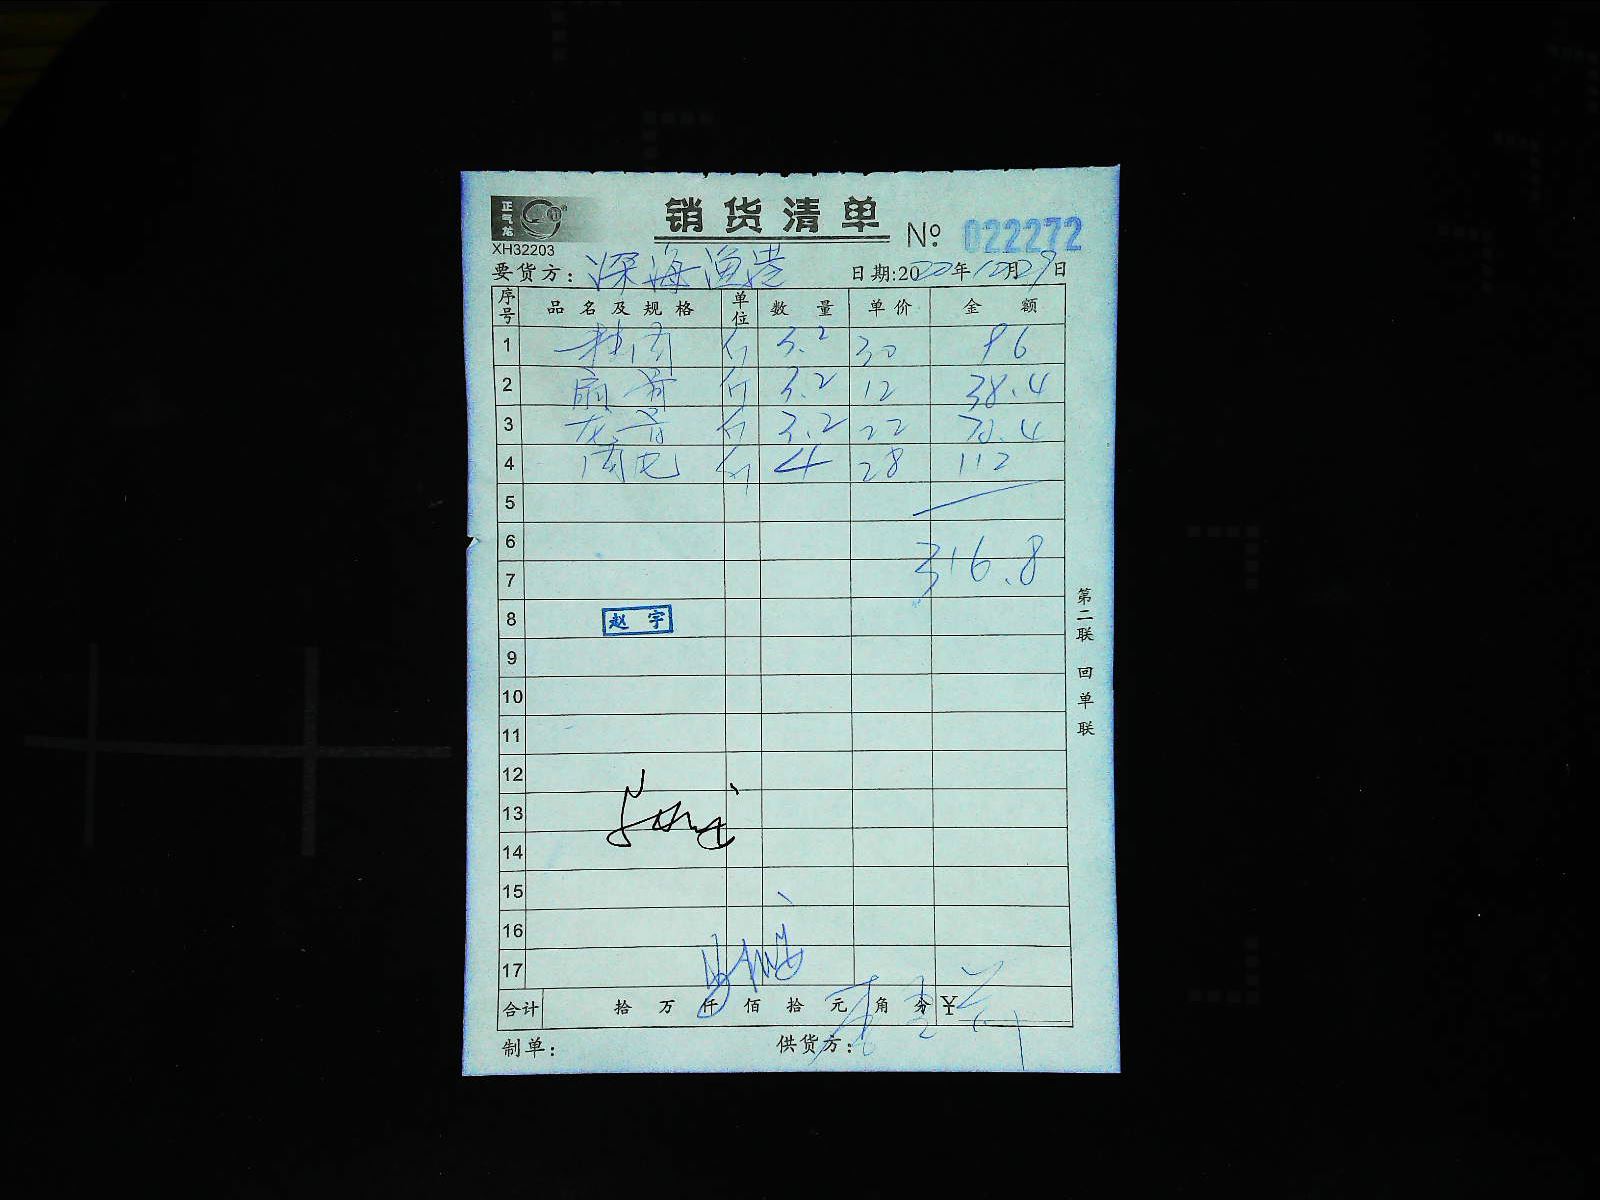 正气站
XH32203
销货清单
№ 022272
要货方：深海渔港 日期:2020年10月29日
序号 品名及规格 单位 数量 单价 金额
1 肉 斤 3.2 30 96
2 扇骨 斤 3.2 12 38.4
3 龙骨 斤 3.2 22 70.4
4 斤 4 28 112
5
6
316.8
7
8 赵宇
9
10
11
12
13
14
15
16
17
合计 拾 万 仟 佰 拾 元 角 分 ¥
制单： 供货方：
第二联 回单联